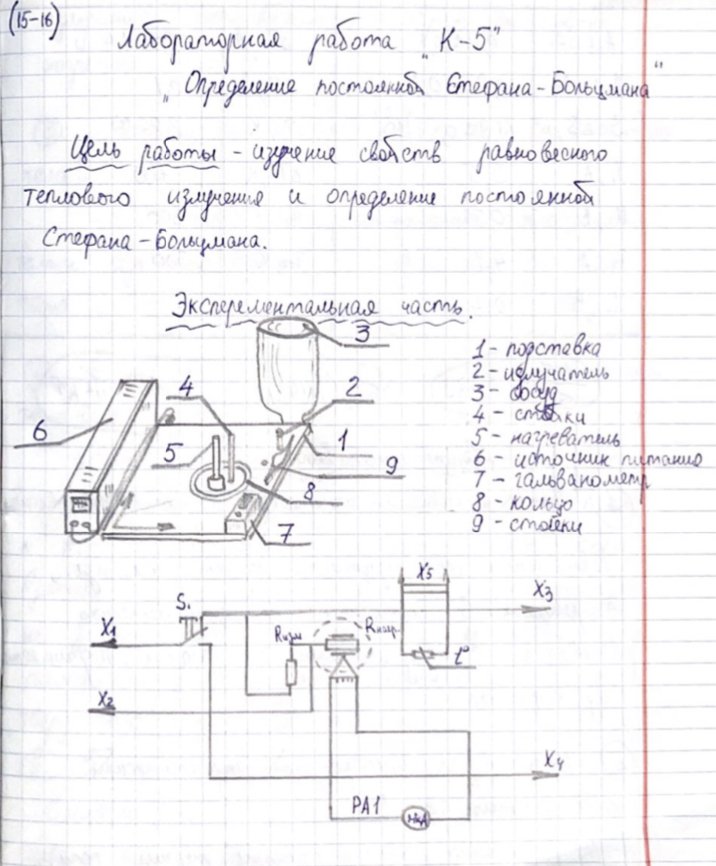 (15-16)
Лабораторная работа „К-5"
„Определение постоянной Стефана-Больцмана"
Цель работы - изучение свойств равновесного
теплового излучения и определение постоянной
Стефана-Больцмана.
Эксперементальная часть.
1 - подставка
2 - излучатель
3 - сосуд
4 - стойки
5 - нагреватель
6 - источник питания
7 - гальванометр
8 - кольцо
9 - стойки
3
4
2
6
5
1
9
8
7
X5
X3
S1
X1
Rизм
Rнагр.
X2
X4
PA1
МкА